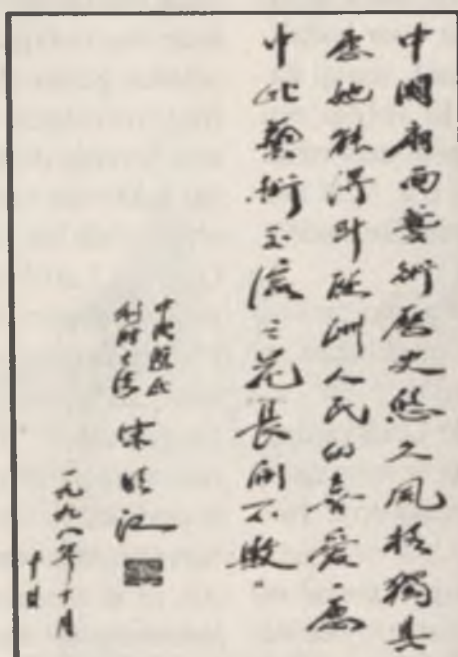 中國扇面藝術歷史悠久风格獨具
愿她能得到欧洲人民的喜爱愿
中比藝術交流之花長開不敗。
中國駐比
利時大使 宋明江
一九九八年十月
十日